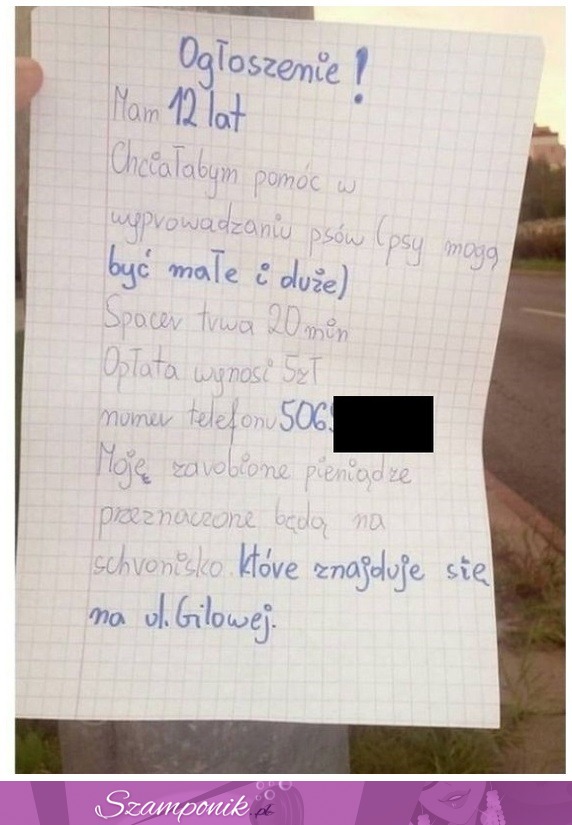 Ogłoszenie!
Mam 12 lat
Chciałabym pomóc w
wyprowadzaniu psów (psy mogą
być małe i duże)
Spacer trwa 20 min
Opłata wynosi 5zł
numer telefonu 506
Moję zarobione pieniądze
przeznaczone będą na
schronisko które znajduje się
na ul. Gilowej.
Szamponik.pl